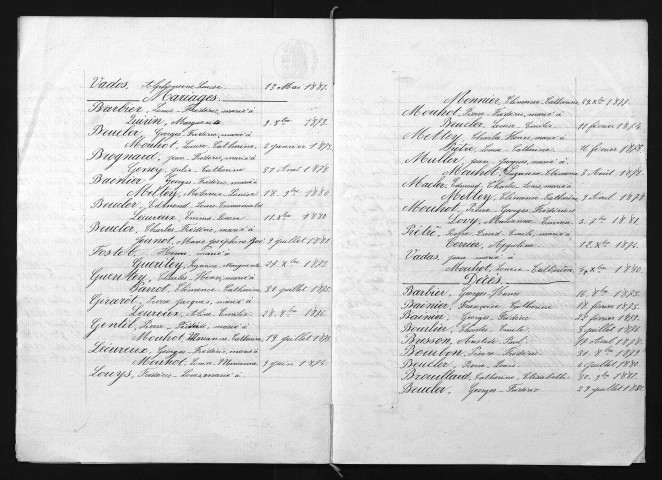 Vados, Alphonsine Louise. 13 Mai 1881.
Mariages.
Barbier, Louis Frédéric, marié à
Quirin, Marguerite 9. 8bre 1873.
Boucler, Georges Frédéric, marié à
Mouhot, Louise Catherine, 2 janvier 1873.
Brognard, Jean Frédéric, marié à
Goney, Julie Catherine 31 Août 1878
Bainier, Georges Frédéric, marié à
Mettey, Mélanie Louise 18. 9bre 1880
Boucler, Edmond Louis Emmanuel
Leureux, Emma Louise 11. Xbre 1880
Boucler, Charles Frédéric, marié à
Jeunot, Marie Joséphine 9 juillet 1881
Fostel, Henri, marié à
Gueutey, Suzanne Marguerite 28 Xbre 1873
Gueutey, Charles Henri, marié à
Parrot, Clémence Catherine 31 juillet 1875.
Girardt, Pierre Jacques, marié à
Leureux, Aline Emélie 28. 8bre 1876.
Gentil, Pierre Frédéric, marié à
Mouhot, Marianne Catherine 19 juillet 1881
Leureux, Georges Frédéric, marié à
Mouhot, Marianne 3 juin 1874.
Lourys, Frédéric Louis, marié à
Monnier, Clémence Catherine 28 Xbre 1871.
Mouhot, Pierre Frédéric, marié à
Boucler, Louise Emélie 11 février 1874.
Mettey, Charles Henri, marié à
Louise Catherine 16 février 1878.
Muller, Jean Jacques, marié à
Mouhot, Suzanne Eléonore 3 Août 1878.
Mader, Edmond Charles Louis, marié à
Mettey, Clémence Catherine 9 Août 1878
Mouhot, Pierre Georges Frédéric
Lovy, Marianne Emma 3. 9bre 1881.
David Emile, marié à
Terrier, Appoline 18. Xbre 1875.
Vadas, Jean marié à
Mouhot, Louise Catherine Xbre 1880.
Décès.
Barbier, Georges Henri 16. 8bre 1873.
Bainier, Françoise Catherine 18 février 1875.
Bainier, Georges Frédéric 22 février 1875.
Bourlier, Charles Emile 5 juillet 1876
Busson, Aristide Paul. 10 Août 1878.
Bourbon, Pierre Frédéric 31. 8bre 1879
Boucler, Pierre Louis. 6 juillet 1880.
Brouillard, Catherine Elisabeth 30. 9bre 1881.
Boucler, Georges Frédéric 29 juillet 1882